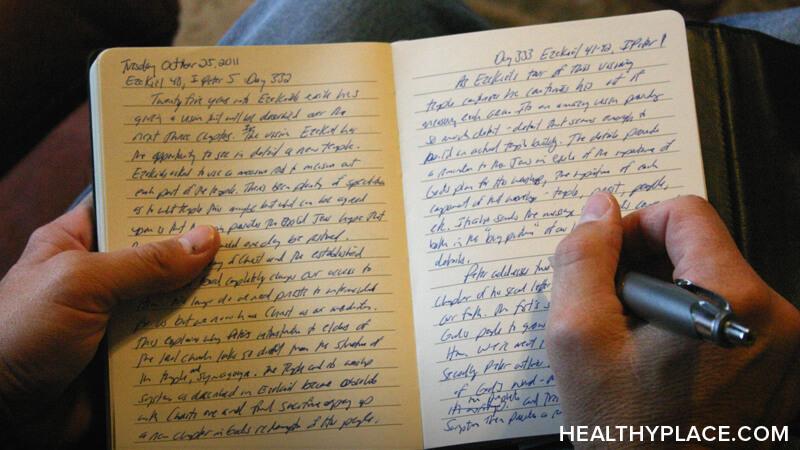 Tuesday October 25, 2011
Ezekiel 40, I Peter 5 Day 332
Twenty five years into Ezekiel's exile he is
given a vision that will be described over the
next three chapters. The vision Ezekiel has
the opportunity to see in detail a new temple.
Ezekiel asked to use a measure rod to measure out
each part of the temple. There's been plenty of speculation
as to what temple this may be but what can be agreed
upon is that the provides the exiled Jews hope that
would one day be restored.
of Christ and the established
completely changes our access to
no longer do we need priests to intercede
for us but we now have Christ as our mediator.
This explains why Peter's instruction to elders of
the church look so different from the structure of
the temple and synagogue. The temple and its worship
system as described in Ezekiel become obsolete
with Christ's one and final sacrifice
a new chapter in God's redemption of His people.
Day 333 Ezekiel 41-42, II Peter 1
As Ezekiel's tour of this visionary
temple continues he continues his
measuring each area. It's an amazing vision providing
so much detail - detail that seems enough to
build an actual temple building. The details provide
a reminder to the Jews in exile of the importance of
God's plan for His worship, the importance of each
component of that worship - temple, priest, people,
etc. It also sends the message
both in the "big picture" of our
details.
Peter addresses
chapter of his second letter
our faith. The first is
God's people to grow
Him.
Secondly Peter
of God's word -
Scripture then provides a
HEALTHYPLACE.COM